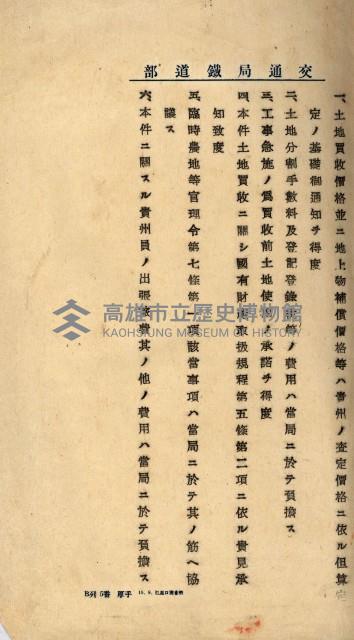 交通局鐵道部
一、土地買收價格並ニ地上物補償價格等ハ貴州ノ査定價格ニ依ル但算定
定ノ基礎御通知ヲ得度
二、土地分割手數料及登記登錄 等ノ費用ハ當局ニ於テ負擔ス
三、工事急施ノ爲買收前土地使用ノ承諾ヲ得度
四、本件土地買收ニ關シ國有財產取扱規程第五條第二項ニ依ル貴見承
知致度
五、臨時農地等管理令第七條第一項該當事項ハ當局ニ於テ其ノ筋ヘ協
議ス
六、本件ニ關スル貴州員ノ出張旅費其ノ他ノ費用ハ當局ニ於テ負擔ス
高雄市立歷史博物館
KAOHSIUNG MUSEUM OF HISTORY
B列5番 厚手